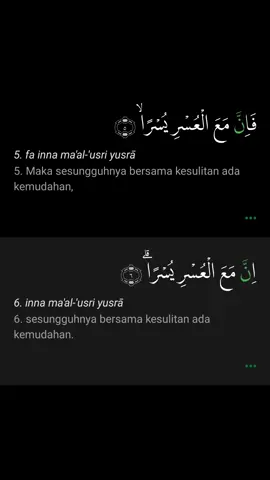 فَاِنَّ مَعَ الْعُسْرِ يُسْرًاۙ ۝٥
5. fa inna ma'al-'usri yusrā
5. Maka sesungguhnya bersama kesulitan ada
kemudahan,
اِنَّ مَعَ الْعُسْرِ يُسْرًاۗ ۝٦
6. inna ma'al-'usri yusrā
6. sesungguhnya bersama kesulitan ada
kemudahan.